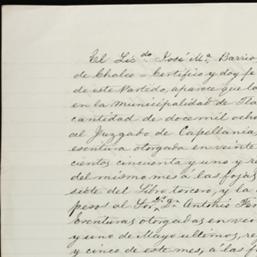 El Lic.do José M.a Barrio
de Chalco = Certifico y doy fe
de este Partido, aparece que la
en la Municipalidad de Tla
cantidad de doce mil ocho
al Juzgado de Capellania
escritura otorgada en veinte
cientos cincuenta y uno y re
del mismo mes á las fojas
siete del Libro tercero, y la
pesos al Sor. Dn. Antonio
Escrituras otorgadas en vei
y uno de Mayo ultimo, re
y cinco de este mes, á las fo